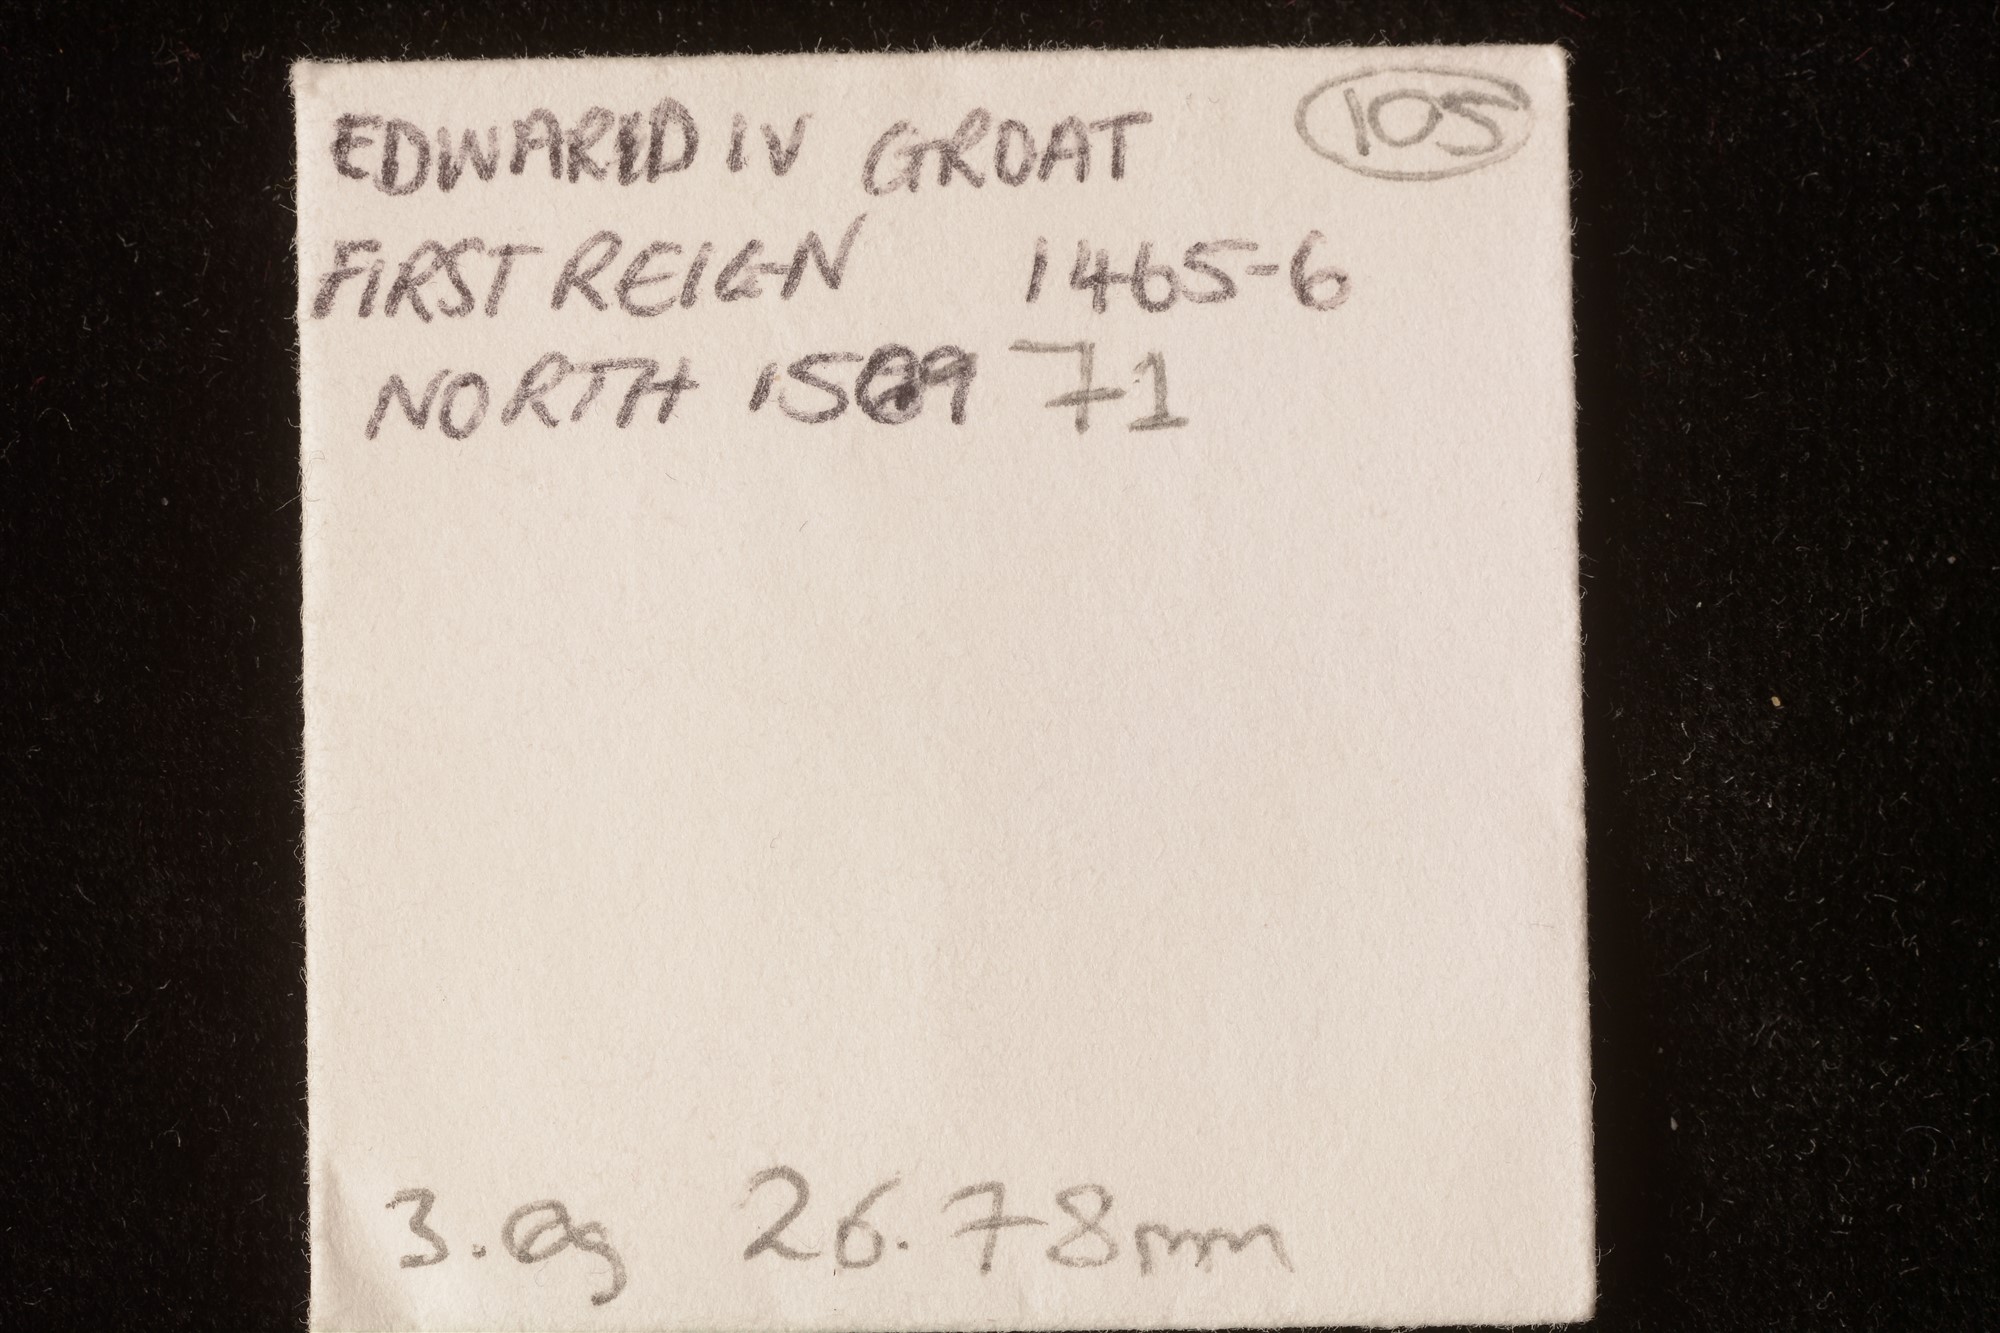 EDWARD IV GROAT 105
FIRST REIGN 1465-6
NORTH 71
3. 26.78mm